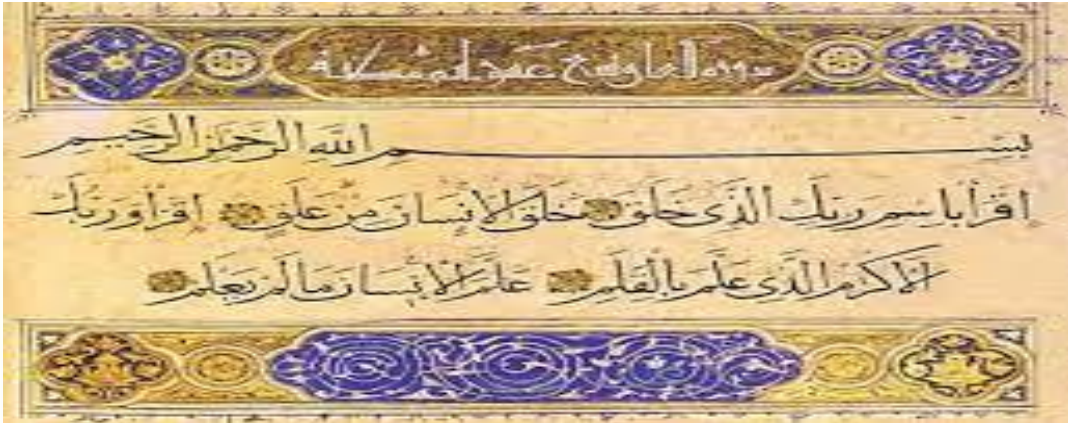 سورة
بِسْمِ اللهِ الرَّحْمَنِ الرَّحِيمِ
اقْرَأْ بِاسْمِ رَبِّكَ الَّذِى خَلَقَ خَلَقَ الْإِنْسَانَ مِنْ عَلَقٍ اقْرَأْ وَرَبُّكَ
الْأَكْرَمُ الَّذِى عَلَّمَ بِالْقَلَمِ عَلَّمَ الْإِنْسَانَ مَا لَمْ يَعْلَمْ